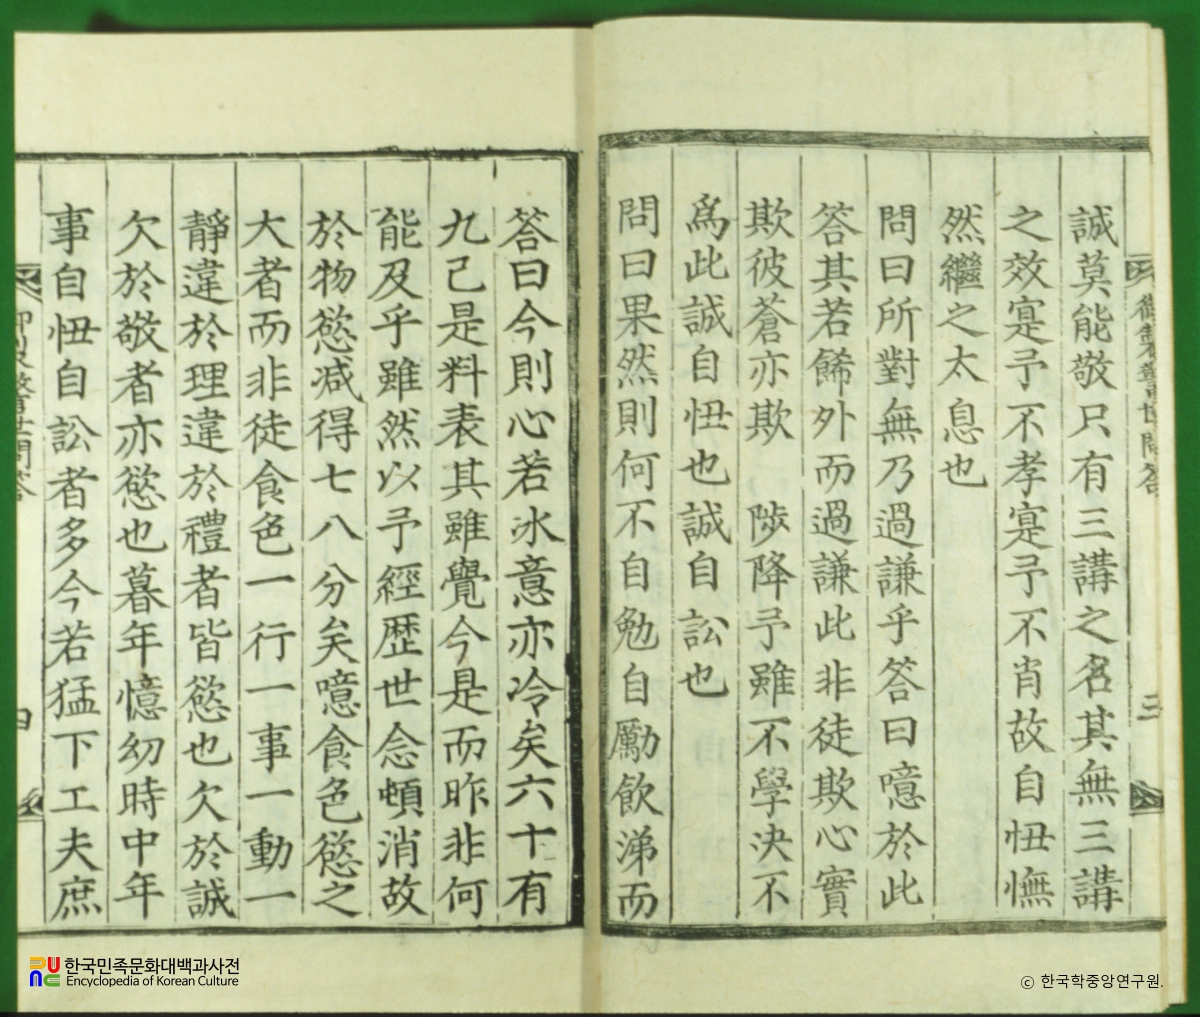 誠莫能敬只有三講之名其無三講
之效寔予不孝寔予不肖故自忸憮
然繼之太息也
問曰所對無乃過謙乎答曰噫於此
答其若餙外而過謙此非徒欺心實
欺彼蒼亦欺 陟降予雖不學決不
爲此誠自忸也誠自訟也
問曰果然則何不自勉自勵飮涕而
答曰今則心若冰意亦冷矣六十有
九己是料表其雖覺今是而昨非何
能及乎雖然以予經歷世念頓消故
於物慾减得七八分矣噫食色慾之
大者而非徒食色一行一事一動一
靜違於理違於禮者皆慾也欠於誠
欠於敬者亦慾也暮年憶幼時中年
事自忸自訟者多今若猛下工夫庶
한국민족문화대백과사전
Encyclopedia of Korean Culture
ⓒ 한국학중앙연구원.